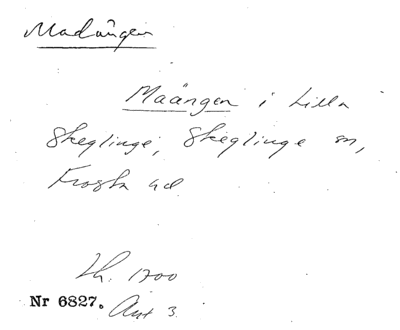 Madängen
Maängen i Lilla
Skeglinge, Skeglinge sn,
Frosta hd
Lh. 1700
Nr 6827. Akt 3.